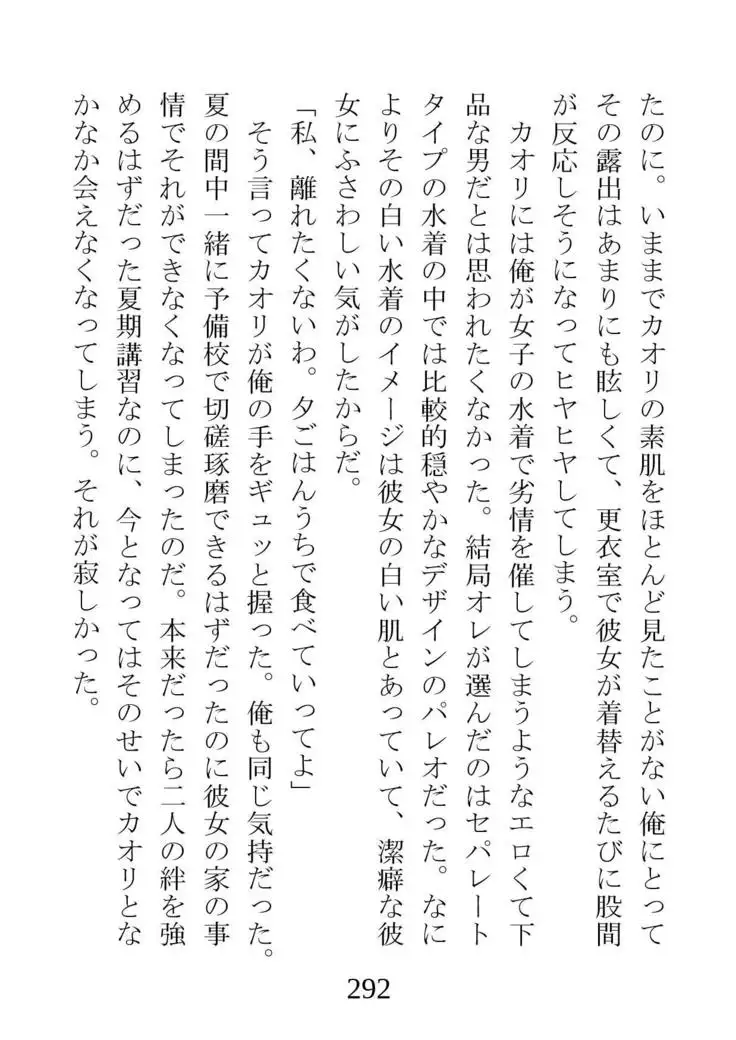 たのに。いままでカオリの素肌をほとんど見たことがない俺にとって
その露出はあまりにも眩しくて、更衣室で彼女が着替えるたびに股間
が反応しそうになってヒヤヒヤしてしまう。
カオリには俺が女子の水着で劣情を催してしまうようなエロくて下
品な男だとは思われたくなかった。結局オレが選んだのはセパレート
タイプの水着の中では比較的穏やかなデザインのパレオだった。なに
よりその白い水着のイメージは彼女の白い肌とあっていて、潔癖な彼
女にふさわしい気がしたからだ。
「私、離れたくないわ。夕ごはんうちで食べていってよ」
そう言ってカオリが俺の手をギュッと握った。俺も同じ気持だった。
夏の間中一緒に予備校で切磋琢磨できるはずだったのに彼女の家の事
情でそれができなくなってしまったのだ。本来だったら二人の絆を強
めるはずだった夏期講習なのに、今となってはそのせいでカオリとな
かなか会えなくなってしまう。それが寂しかった。
292